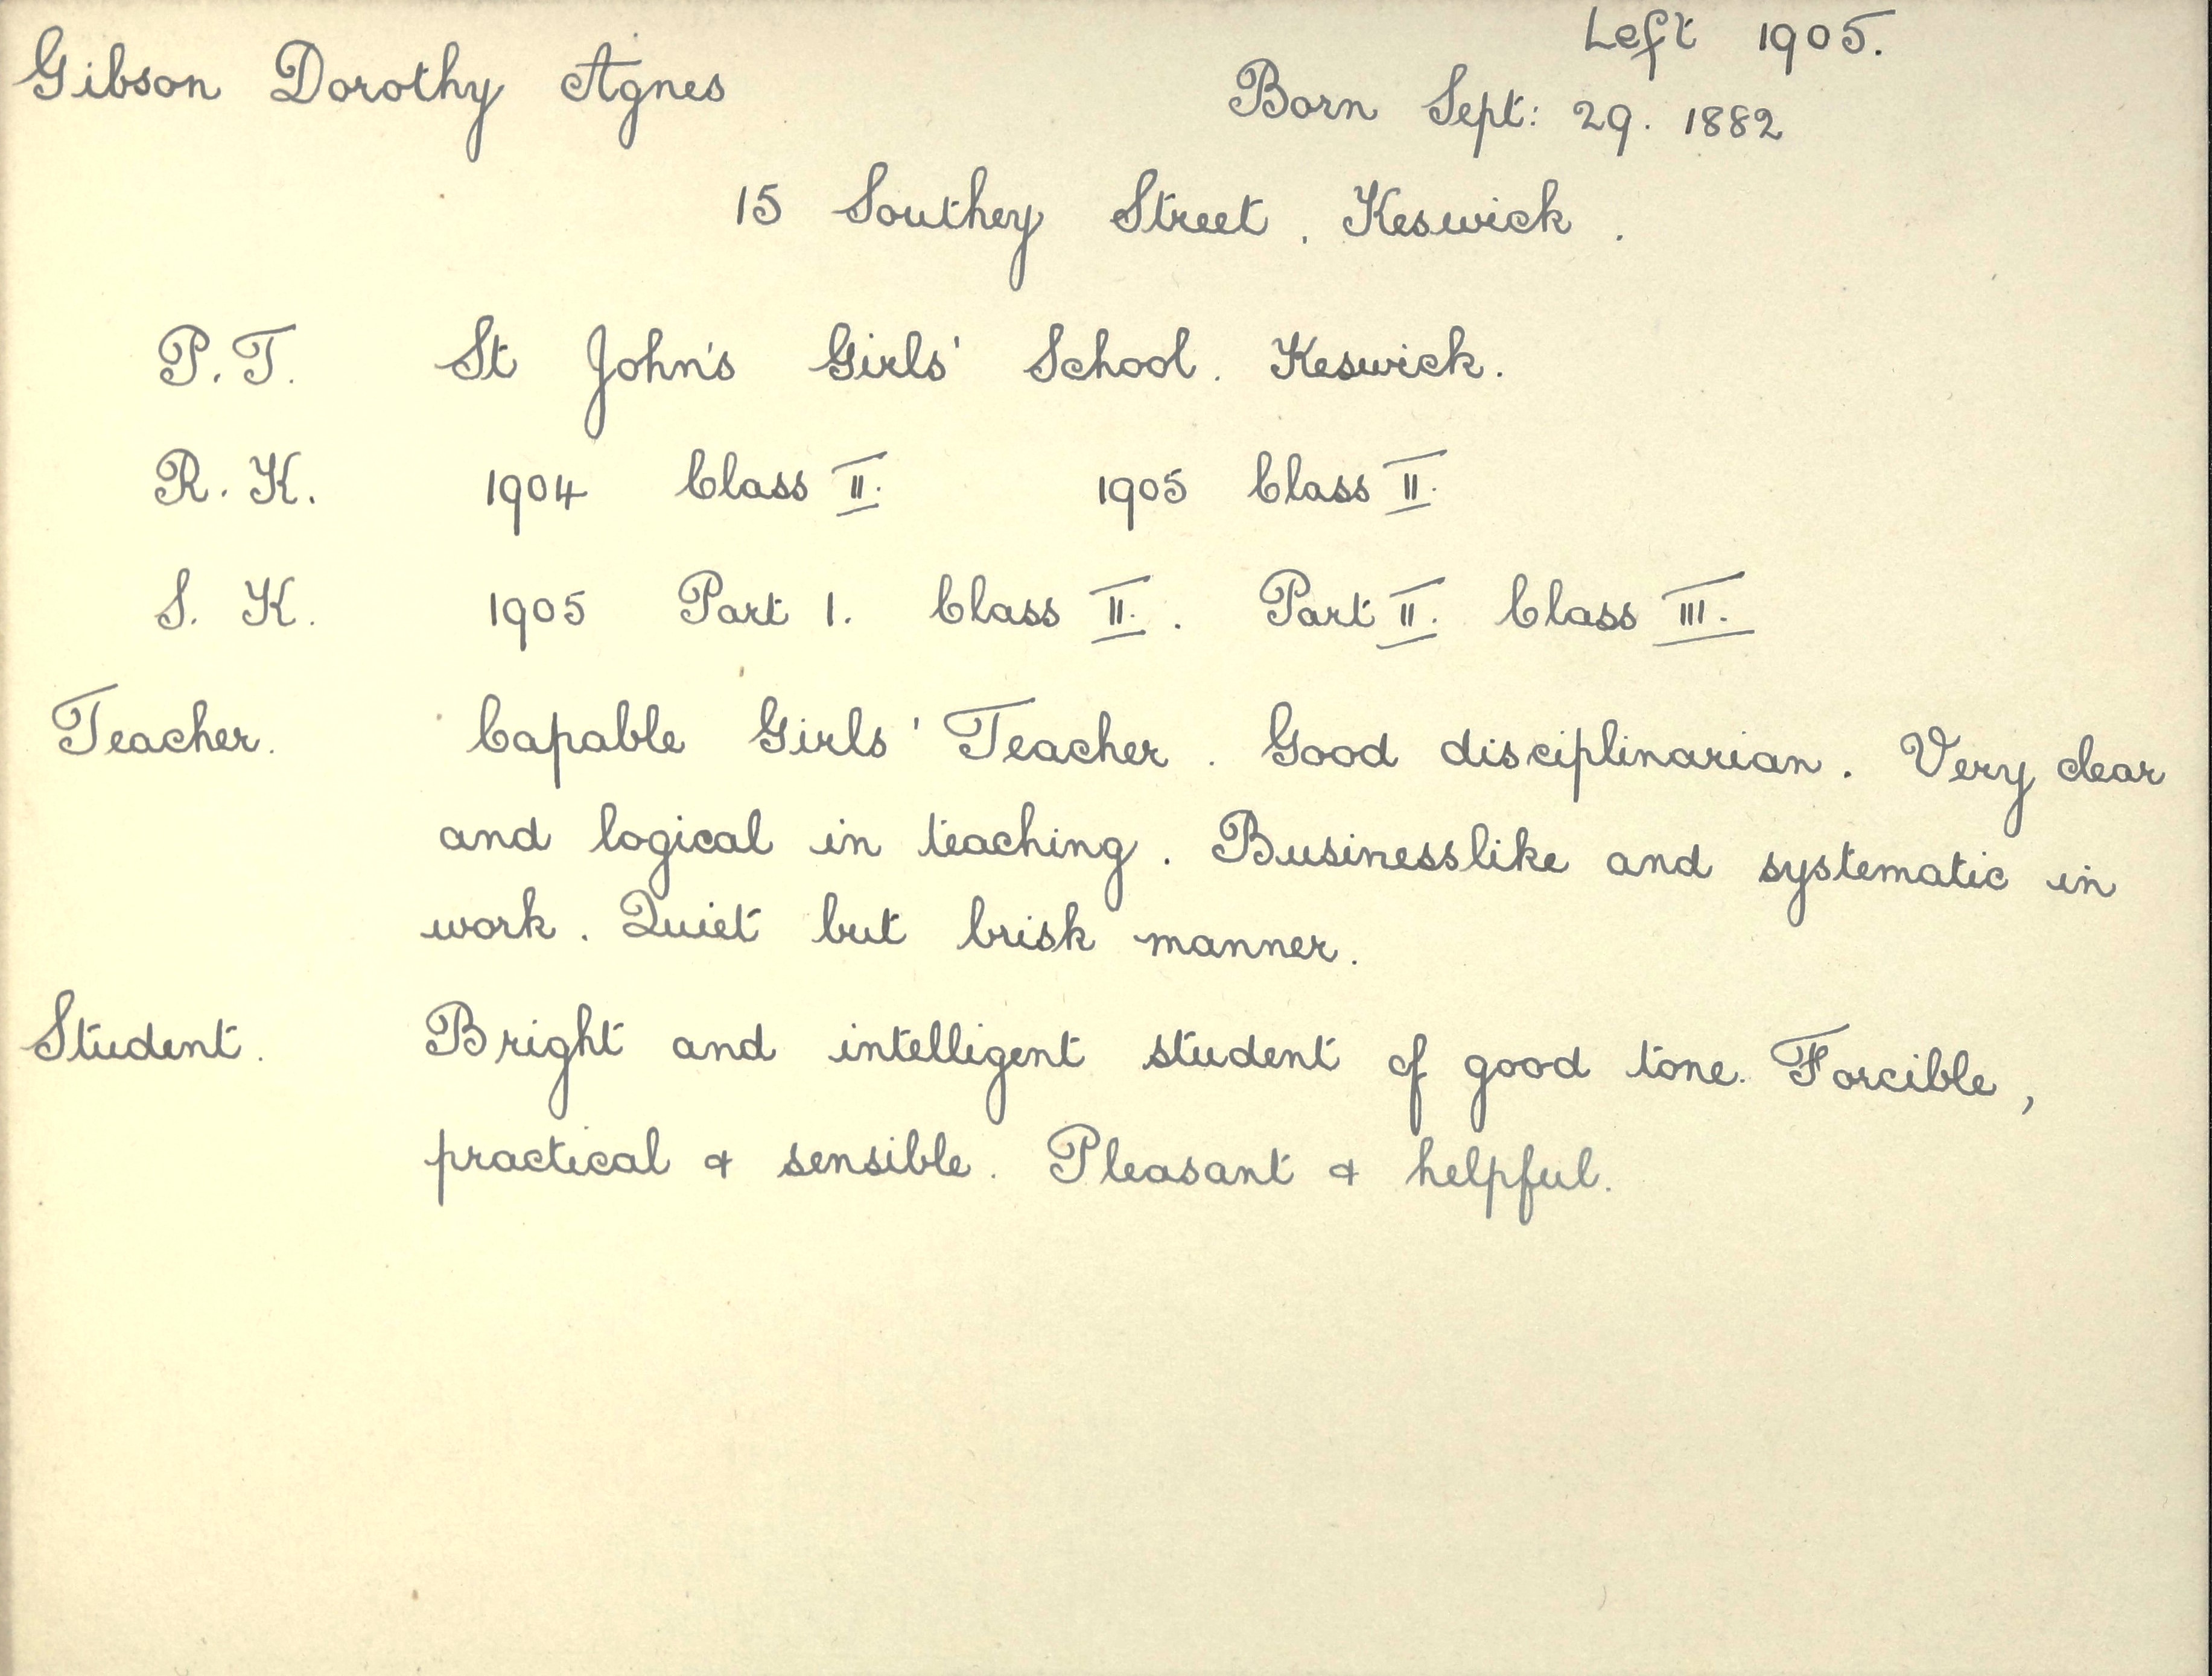 Left 1905.
Gibson Dorothy Agnes Born Sept: 29. 1882
15 Southey Street. Keswick.
P.T. St John's Girls' School. Keswick.
R. K. 1904 Class II. 1905 Class II.
S. K. 1905 Part 1. Class II.. Part II. Class III.
Teacher. Capable Girls' Teacher. Good disciplinarian. Very clear
and logical in teaching. Businesslike and systematic in
work. Quiet but brisk manner.
Student. Bright and intelligent student of good tone. Forcible,
practical & sensible. Pleasant & helpful.